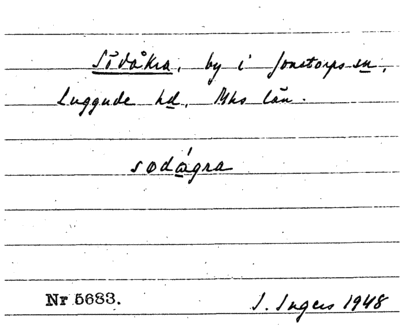 Södåkra, by i Jonstorps sn,
Luggude hd, Mhs län.
sødágra
Nr 5683.
I. Ingers 1948